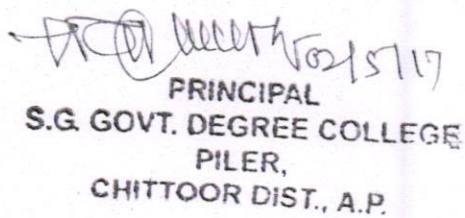 02/5/17
PRINCIPAL
S.G. GOVT. DEGREE COLLEGE
PILER,
CHITTOOR DIST., A.P.